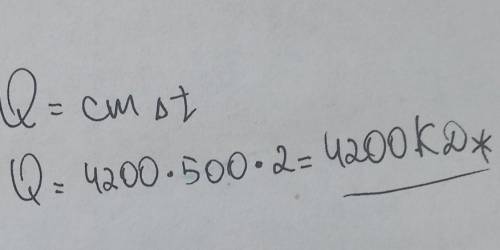 Q = cm Δt
Q = 4200·500·2 = 4200КДж